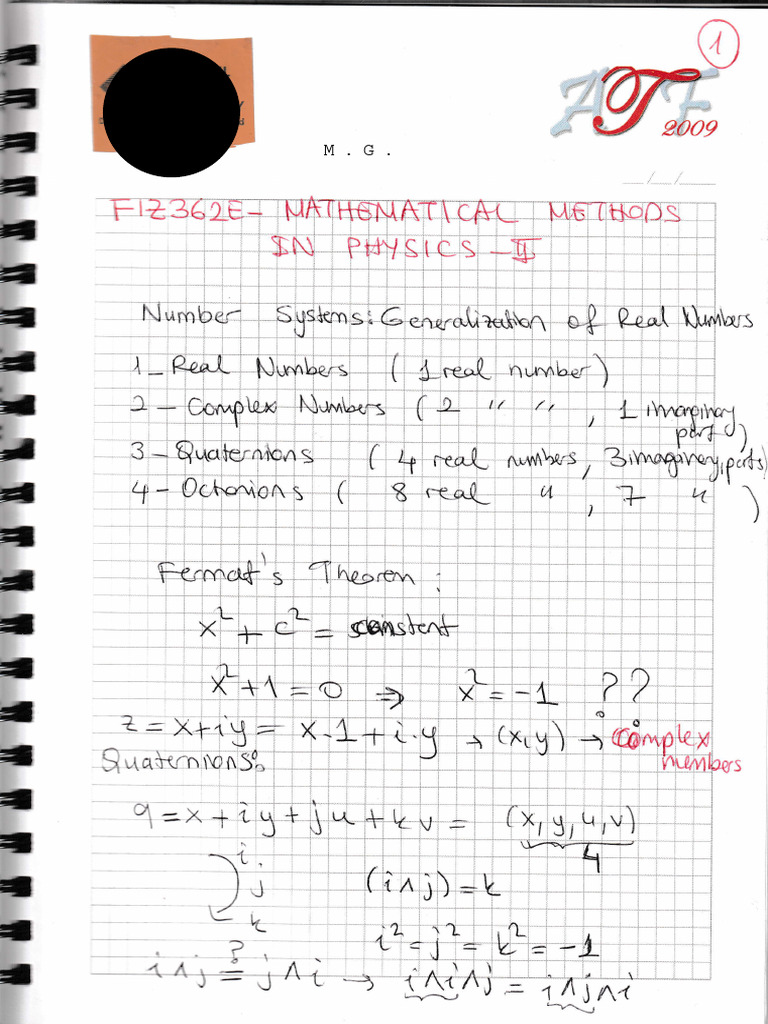 1
ATF
2009
M.G.
__/__/____
FIZ362E- MATHEMATICAL METHODS
IN PHYSICS-II
Number Systems: Generalization of Real Numbers
1_ Real Numbers ( 1 real number )
2 - Complex Numbers ( 2 " " , 1 imaginary part )
3 - Quaternions ( 4 real numbers, 3 imaginary parts)
4 - Octonions ( 8 real " , 7 " )
Fermat's Theorem :
x² + c² = constent
x²+1=0 ⇒ x²=-1 ??
z=x+iy= x.1+i.y → (x,y) → Complex
members
Quaternions:
q=x+iy+ju+kv= (x,y,u,v)
4
i
j
k
(i∧j)=k
i²=j²=k²=-1
i∧j ≟ j∧i → i∧i∧j = i∧j∧i